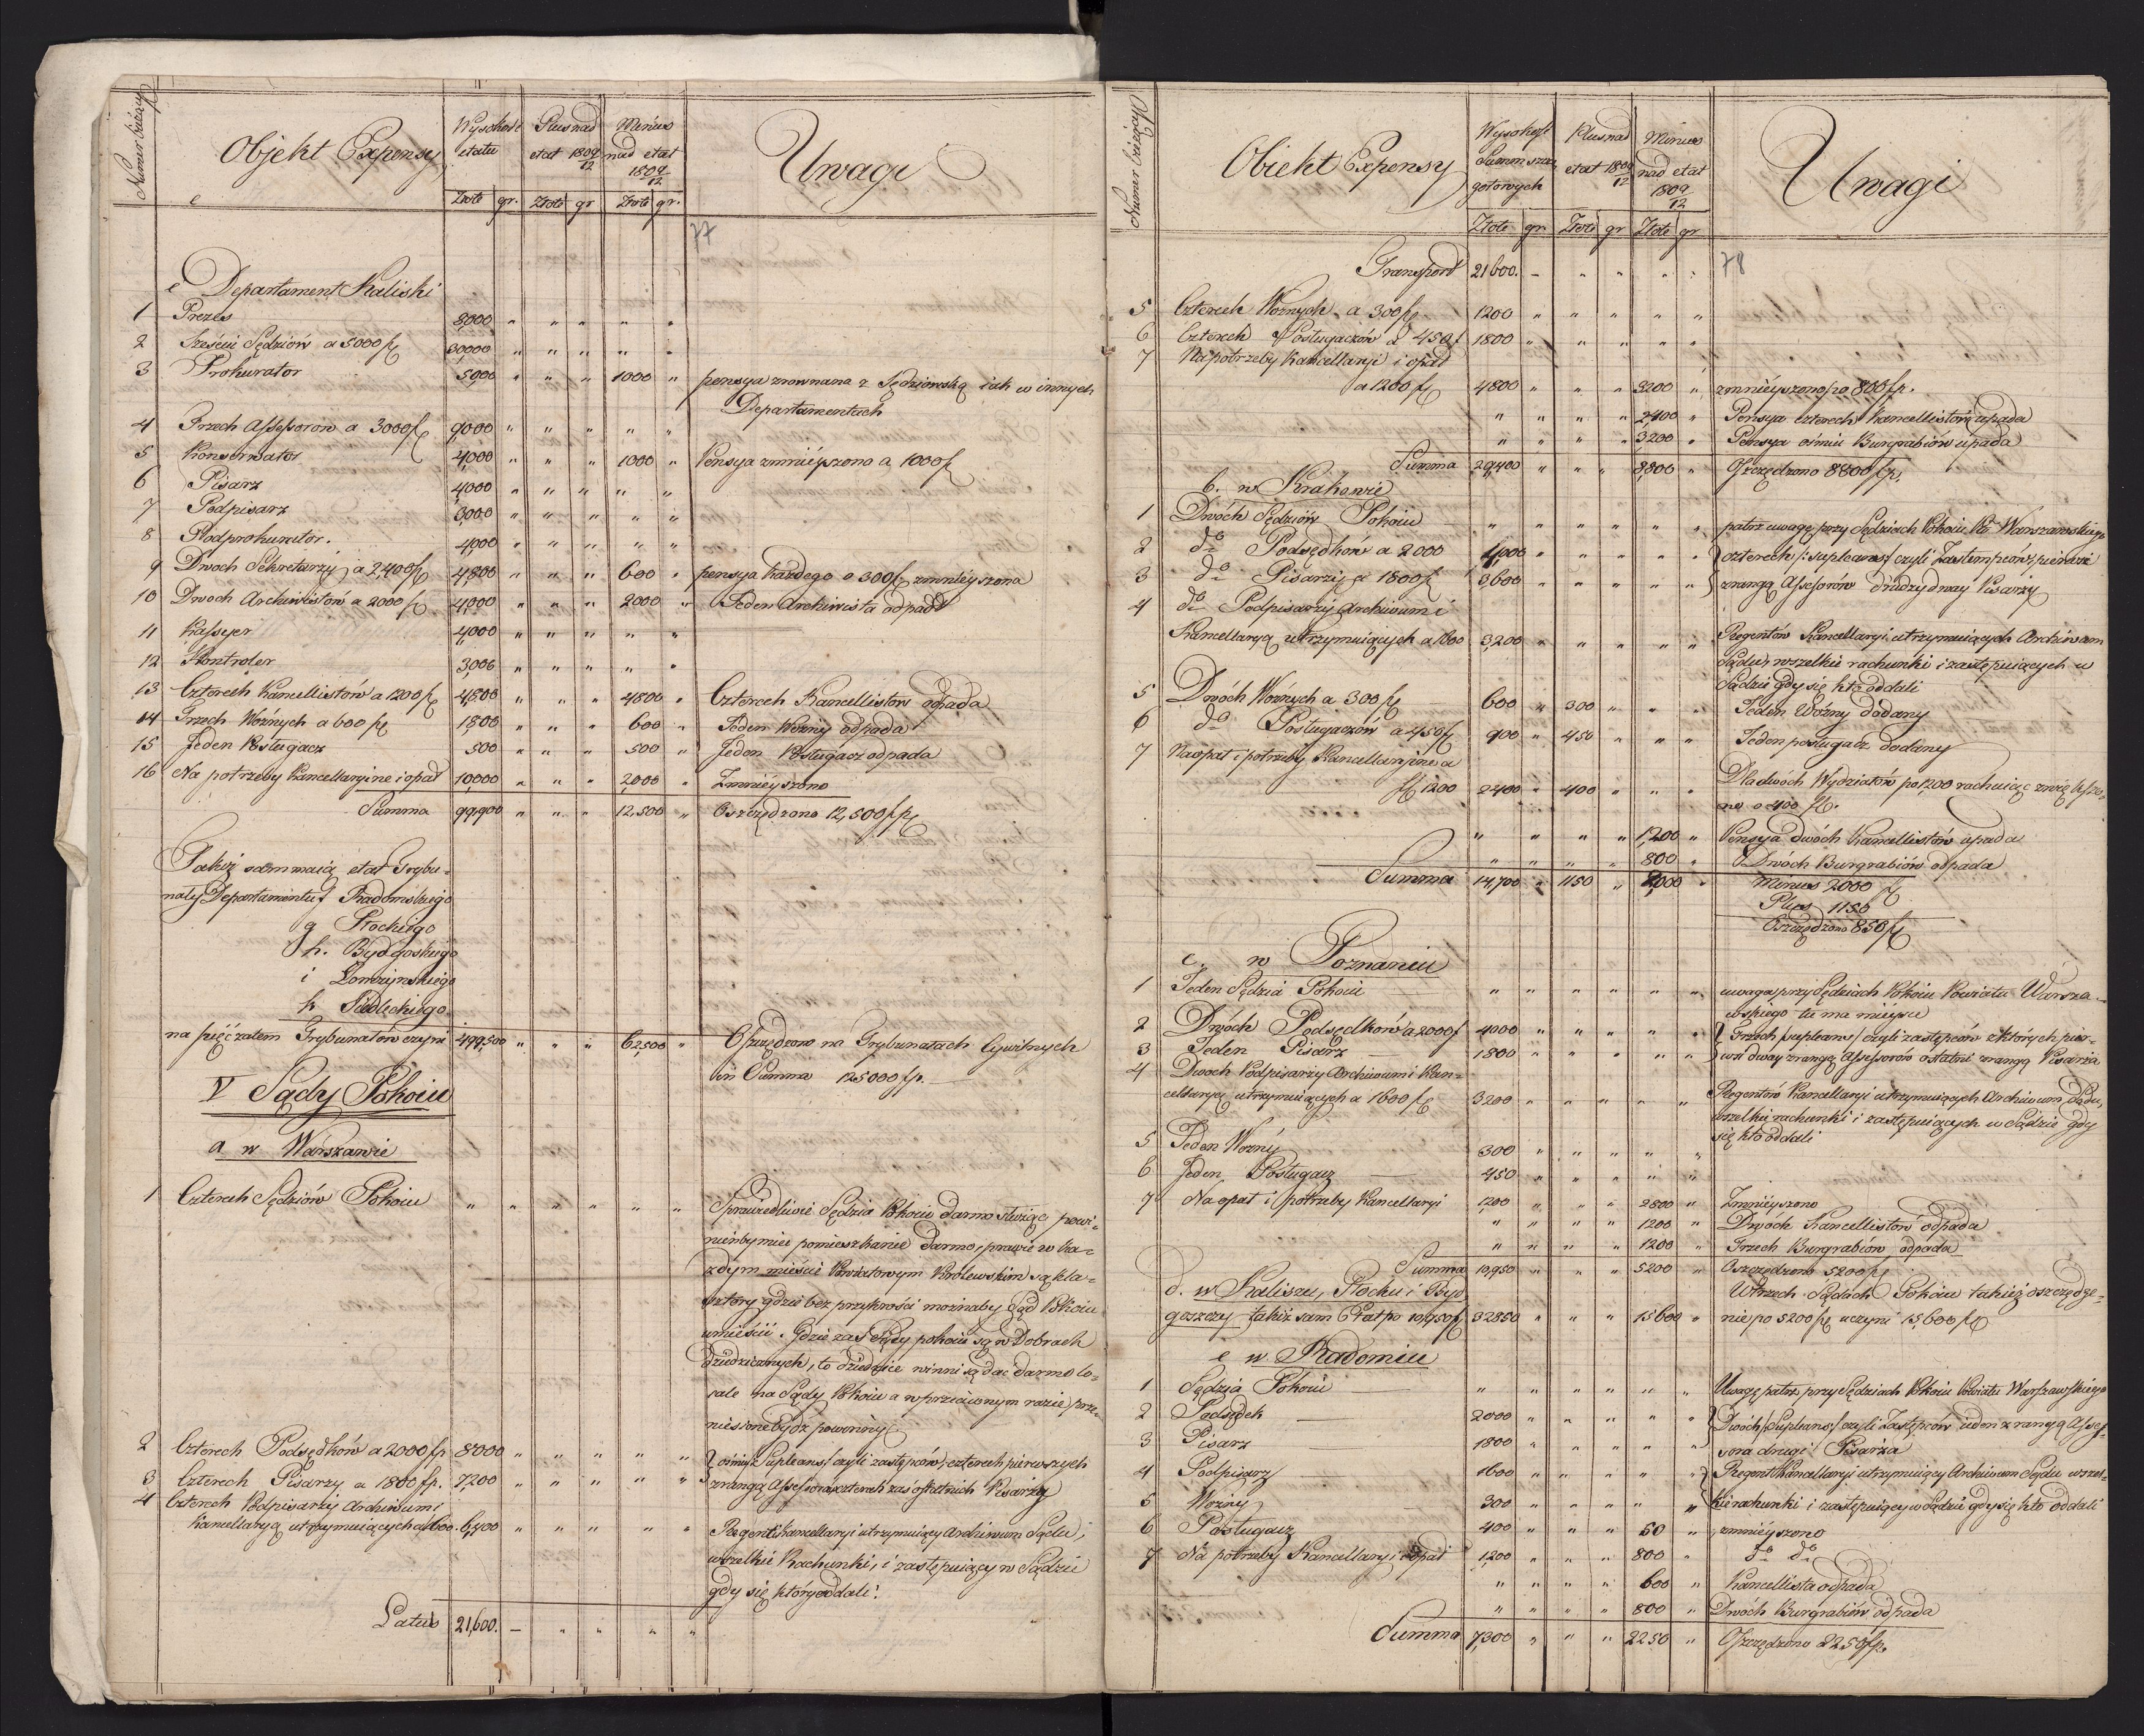 Numer bieżący
Objekt Expensy
Wysokość etatu
Plus nad etat 1809/12
Minus nad etat 1809/12
Uwagi
Złote gr. Złote gr Złote gr.
77
e Departament Kaliski
1 Prezes 8,000 " " " " "
2 Sześciu Sędziów a 5000 fl 30,000 " " " " "
3 Prokurator 5000 " " " 1000 " pensya zrownana z Sędziowską iak w innych
Departamentach
4 Trzech Assessorow a 3000 fl 9,000 " " " " "
5 Konserwator 4,000 " " " 1000 " Pensya zmniéyszono a 1000 fl
6 Pisarz 4000 " " " " "
7 Podpisarz 3,000 " " " " "
8 Podprokurator. 4,000 " " " " "
9 Dwoch Sekretarzy a 2,400 fl 4,800 " " " 600 " pensya każdego o 300 fl zmniéyszona
10 Dwoch Archiwistow a 2000 fl 4,000 " " " 2000 " Jeden Archiwista odpadł
11 Kassyer 4,000 " " " " "
12 Kontroler 3,000 " " " " "
13 Czterech Kancellistow a 1200 fl 4,800 " " " 4800 " Czterech Kancellistow odpada
14 Trzech Woźnych a 600 fl 1,800 " " " 600 " Jeden Woźny odpada
15 Jeden Posługacz 500 " " " 500 " Jeden Posługacz odpada
16 Na potrzeby Kancellaryine i opał 10,000 " " " 2,000 " Zmnieyszono
Summa 99,900 " " " 12,500 " Oszczędzono 12,500 fl
Takiż sam maią etat Trybu-
nały Departamentu f Radomskiego
g Płockiego
h. Bydgoskiego
i Łomżynskiego
k Siedleckiego
na pięć zatem Trybunałow czyni 499,500 " " " 62,500 " Oszczędzono na Trybunałach Cywilnych
in Summa 125000 fl.
V Sądy Pokoiu
a w Warszawie
1 Czterech Sędziów Pokoiu " " " " " " Sprawiedliwie Sędzia Pokoiu darmo służąc powi-
nienby mieć pomieszkanie darmo, prawie w ka-
żdym mieście Powiatowym Królewskim są kla-
sztory gdzie bez przykrości możnaby Sąd Pokoiu
umieścić. Gdzie zaś Sądy pokoiu są w Dobrach
dziedzicznych, to dziedzice winni są dać darmo lo-
cale na Sądy Pokoiu a w przeciwnym razie prze-
niesione bydź powinny
2 Czterech Podsędków a 2000 fl 8000 " " " " " ośmiu Supleans/ czyli zastępców, czterech pierwszych
3 Czterech Pisarzy a 1800 fl. 7,200 " " " " " z rangą Assessora, czterech zaś ostatnich Pisarzy
4 Czterech Podpisarzy Archiwum i
Kancellaryą utrzymuiących a 1600. 6,400 " " " " " Regent Kancellaryi utrzymuiący Archiwum Sądu,
wszelkie Rachunki, i zastępuiący w Sądzie
gdy się który oddali.
Latus 21,600. - " " " "
Numer bieżący
Obiekt Expensy
Wysokość Summ szcze gołowych
Plus nad etat 1809/12
Minus nad etat 1809/12
Uwagi
Złote gr. Złote gr Złote gr
78
Transport 21600. - " " " "
5 Czterech Woźnych a 300 fl 1200 " " " " "
6 Czterech Posługaczów a 450 f 1800 " " " " "
7 Na potrzeby Kancellaryi i opał
a 1200 fl 4800 " " " 3200 " zmniéyszono po 800 fl.
" " " " 2,400 " Pensya czterech Kancellistow upada
" " " " 3,200 " Pensya ośmiu Burgrabiów upada
Summa 29,400 " " " 8,800 " Oszczędzono 8800 fl.
b. w Krakowie
1 Dwóch Sędziów Pokoiu " " " " " " patrz uwagę przy Sędziach Pokoiu Pu Warszawskiego
2 do Podsędków a 2000 4,000 " " " " " czterech /: supleans/ czyli Zastempców, pierwsi
3 do Pisarzy a 1800 fl 3,600 " " " " " z rangą Assessorów drudzy dway Pisarzy
4 do Podpisarzy Archiwum i
Kancellaryą utrzymuiących a 1600 3,200 " " " " " Regentów Kancellaryi utrzymuiących Archiwum
Sądu, wszelkie rachunki i zastępuiących w
Sądzie gdy się kto oddali
5 Dwóch Woźnych a 300 fl 600 " 300 " " " Jeden Woźny dodany
6 do Posługaczów a 450 fl 900 " 450 " " " Jeden posługacz dodany
7 Na opał i potrzeby Kancellaryine a
fl 1200 2400 " 400 " " " Dla dwóch Wydziałów po 1200 rachuiąc zwiększo
no o 400 fl.
" " " " 1,200 " Pensya dwóch Kancellistów upada
" " " " 800 " Dwoch Burgrabiów odpada
Summa 14,700 " 1150 " 2,000 " Minus 2000 fl
Plus 1150
Oszczędzono 850 fl
c. w Poznaniu
1 Jeden Sędzia Pokoiu " " " " " " uwaga przy Sędziach Pokoiu Powiatu Warsza-
wskiego tu ma mieysce
2 Dwóch Podsędków a 2000 f 4000 " " " " " Trzech /supleans/ czyli zastępców z których pier-
3 Jeden Pisarz 1800 " " " " " wsi dway z rangą Assessorów ostatni z rangą Pisarza
4 Dwoch Podpisarzy Archiwum i Kan-
cellaryą utrzymuiących a 1600 fl 3200 " " " " " Regentów Kancellaryi utrzymuiących Archiwum Sądu,
wszelkie rachunki i zastępuiących w Sądzie gdy
się kto oddali
5 Jeden Woźny 300 " " " " "
6 Jeden Posługacz 450 " " " " "
7 Na opał i potrzeby Kancellaryi 1,200 " " " 2800 " Zmnieyszono
" " " " 1200 " Dwóch Kancellistów odpada
" " " " 1200 " Trzech Burgrabiów odpada
Summa 10,950 " " " 5200 " Oszczędzono 5,200 fl
d. w Kaliszu, Płocku i Byd W trzech Sądach Pokoiu takież oszczędze-
goszczy takiż sam Etat po 10,950 fl 32850 " " " 15600 " nie po 5200 fl uczyni 15,600 fl
e w Radomiu
1 Sędzia Pokoiu " " " " " " Uwagę patrz przy Sędziach Pokoiu Powiatu Warszawskiego
2 Podsędek 2000 " " " " " Dwóch /Supleans/ czyli Zastępców ieden z rangą Asses-
3 Pisarz 1800 " " " " " sora drugi Pisarza
4 Podpisarz 1600 " " " " " Regent Kancellaryi utrzymuiący Archiwum Sądu wszel-
5 Woźny 300 " " " " " kie rachunki i zastępuiący w Sądzie gdy się kto oddali
6 Posługacz 400 " " " 50 " zmniéyszono
7 Na potrzeby Kancellaryi i opał 1,200 " " " 800 " do do
" " " " 600 " Kancellista odpada
" " " " 800 " Dwóch Burgrabiów odpada
Summa 7,300 " " " 2250 " Oszczędzono 2250 fl.